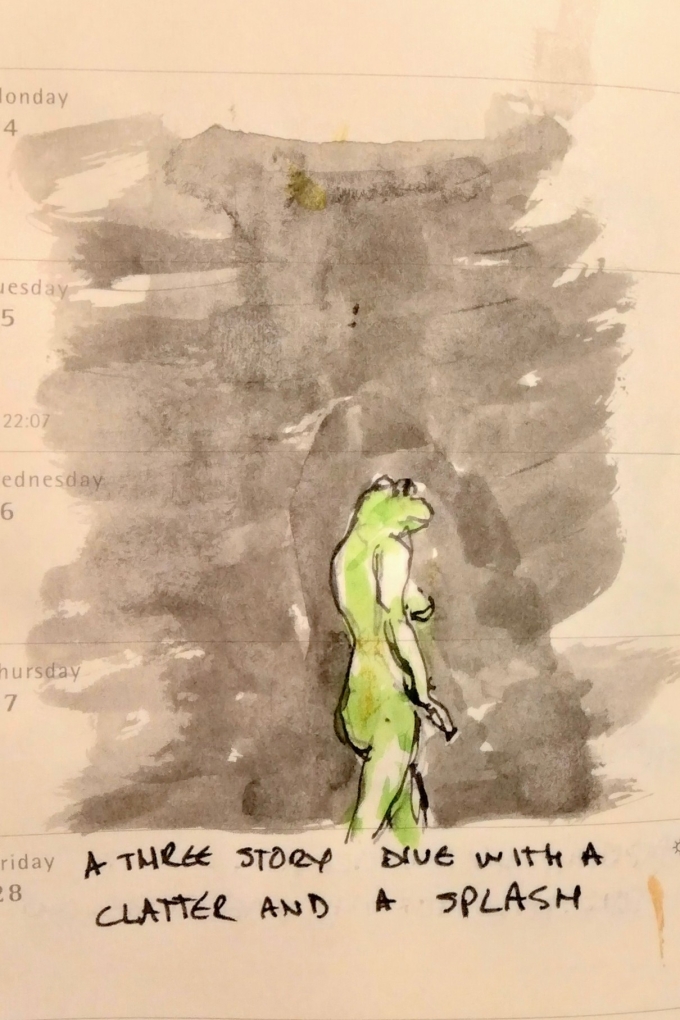 onday
4
uesday
5
22:07
ednesday
6
hursday
7
riday
28
A THREE STORY DIVE WITH A
CLATTER AND A SPLASH